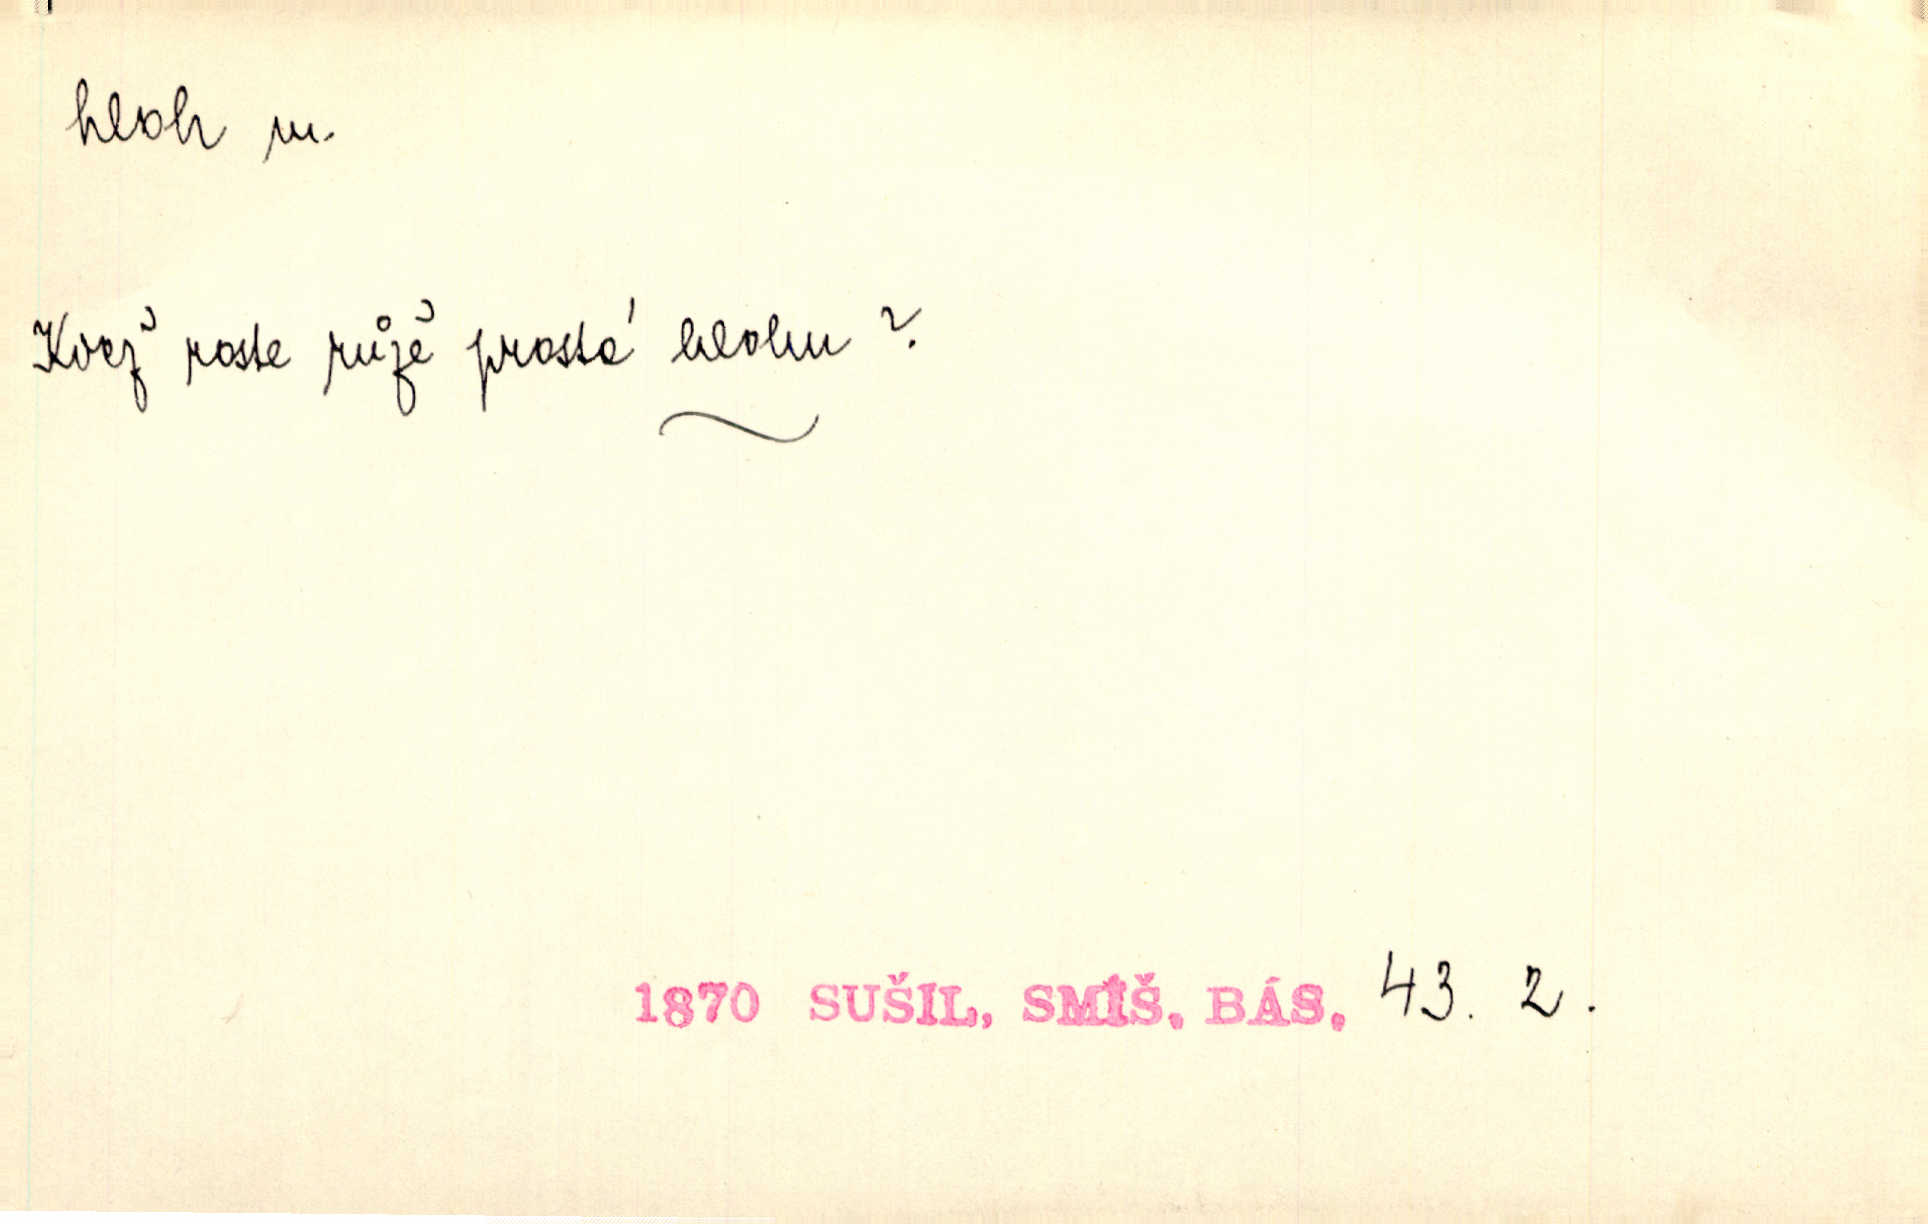 hloh m.
Kdež roste růžě prostá hlohu?
1870 SUŠIL, SMÍŠ. BÁS. 43. 2.